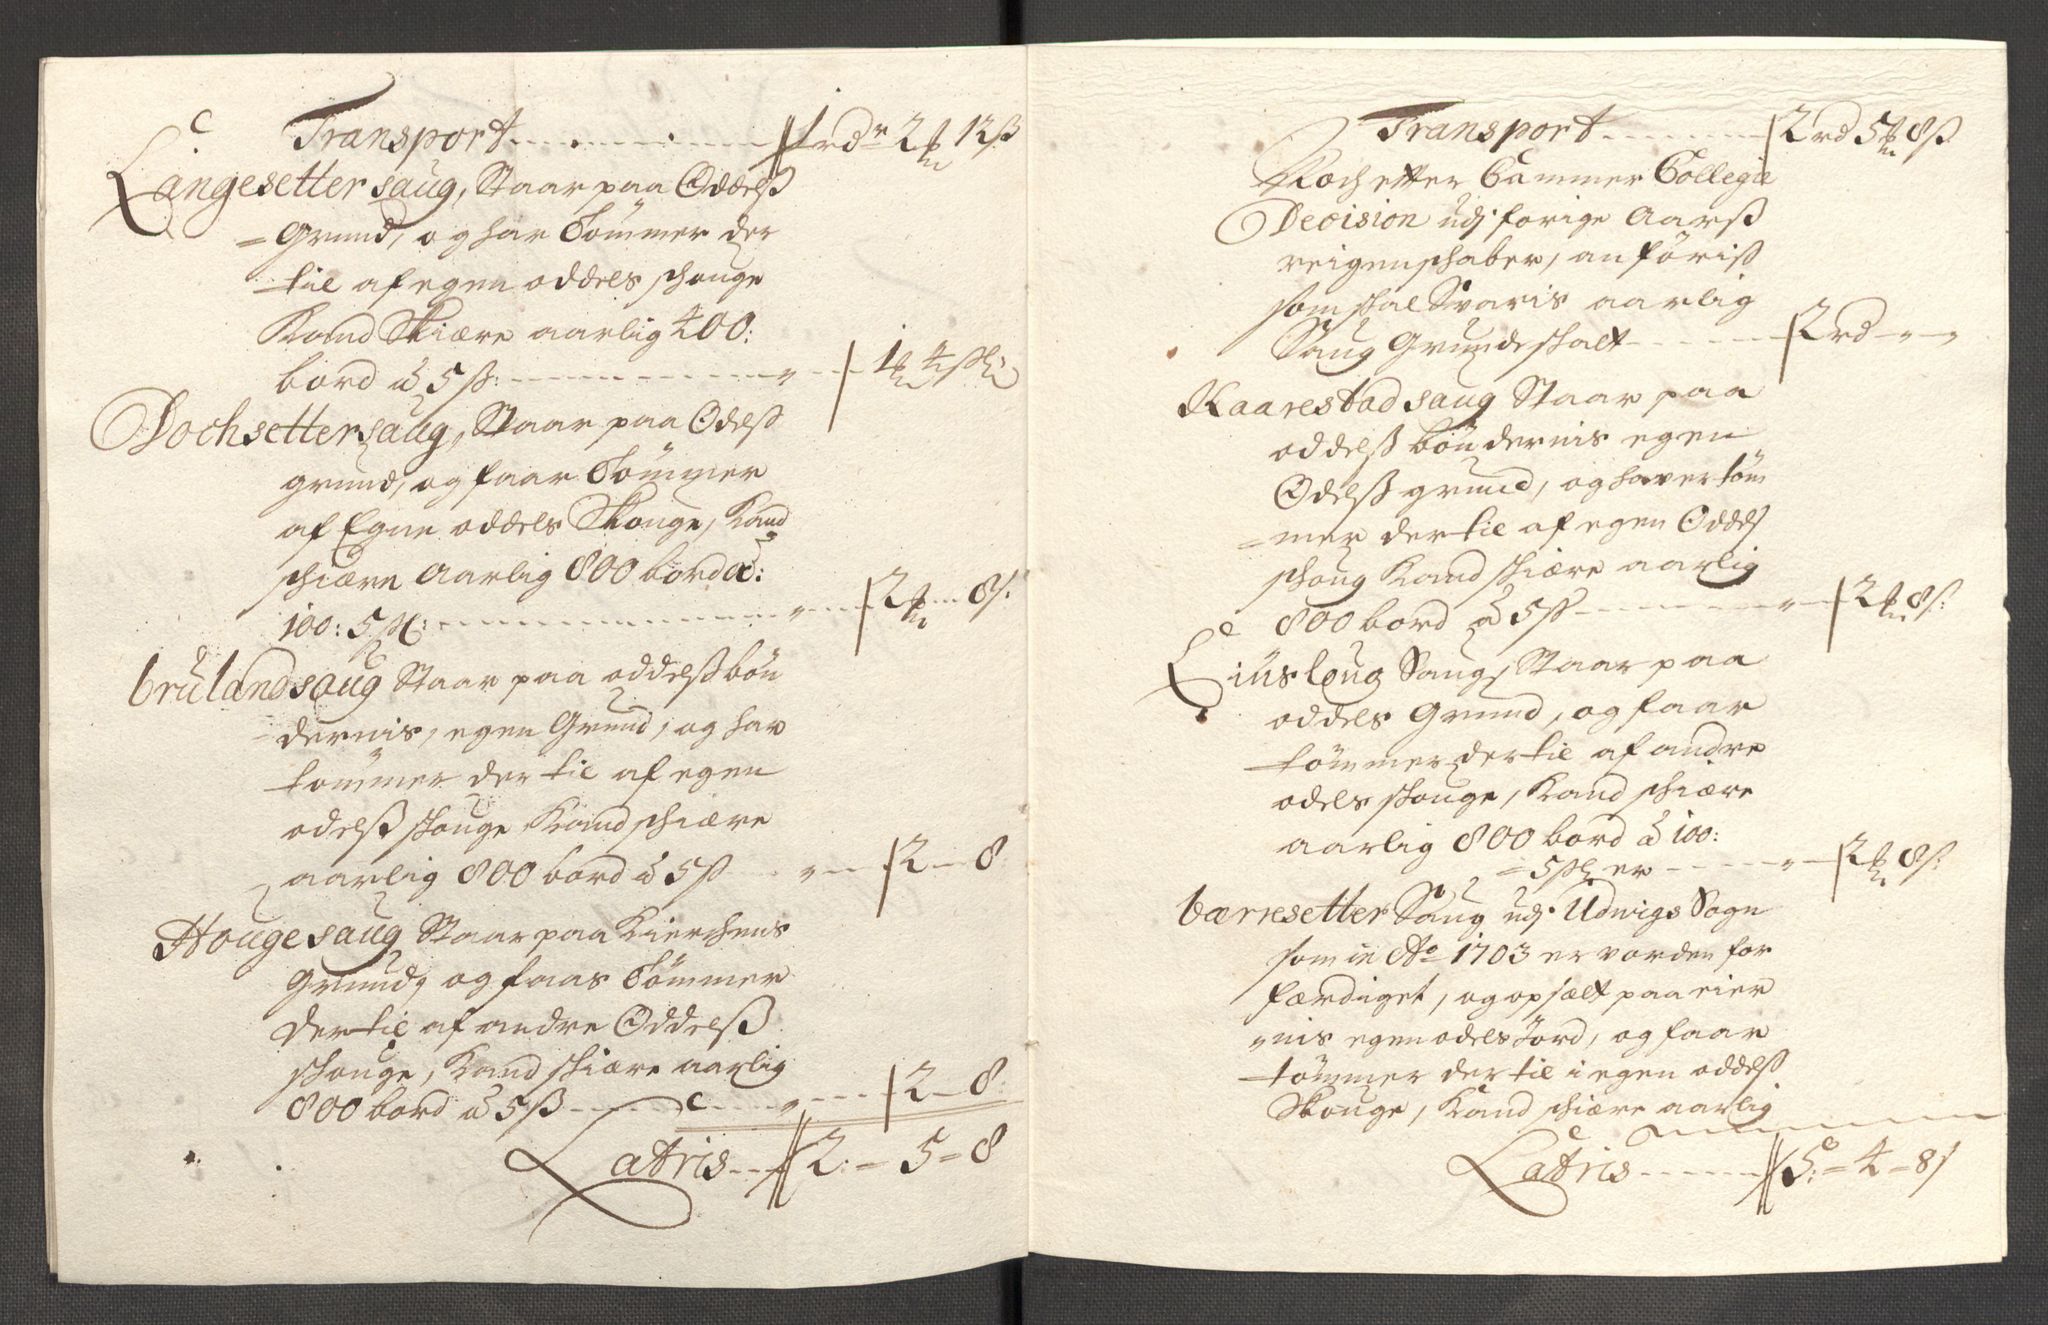 Transport 1 rdr 2 12 ß
Langesetter saug, Staar paa Oddelß
= Grund, og har Tömmer der
til af egen oddels schouge
Kand Skiære aarlig 400:
bord á 5 ß: 1 4 ß
Dochsetter saug, Staar paa Odelß
grund, og faar Tömmer
af Egne oddels Skouge, Kand
schiære Aarlig 800 bord á:
100: 5 ß: 2 8 ß.
brulandsaug Staar paa oddelß bön
= dernis, egen Grund, og har
tömmer der til af egen
odelß skouge Kand schiære
aarlig 800 bord á 5 ß 2 - 8
Hougesaug Staar paa Kierchens
Grund, og faar Tömmer
der til af andre Oddelß
skouge, Kand skiære aarlig
800 bord á 5 ß 2 - 8:
Latris 2: = 5 = 8
Transport 2 rd 5 8 ß
Noch efter Cammer Collegie
Decision udj forige Aarß
reigenschaber, anföriß
som skal Svaris aarlig
Saug Grundeskalt 2 rd
Kaarestad saug Staar paa
oddelß bön dernis egen
Odelß grund, og haver töm
= mer der til af egen Oddels
schoug Kand skiære aarlig
800 bord á 5 ß 2 8 ß:
Saug, Staar paa
oddels Grund, og faar
tömmer der til af andre
odels skouge, Kand schiære
aarlig 800 bord á 100:
= 5 ß er 2 8 ß:
værresetter Saug udj Udwigs Sogn
som in Ao 1703 er vorden for
færdiget, og opsælt paa eier
nis egen odels Jord, og faar
tömmer der til i egen oddelß
Skouge, Kand schiære aarlig
Latris 5: = 4 = 8 ß